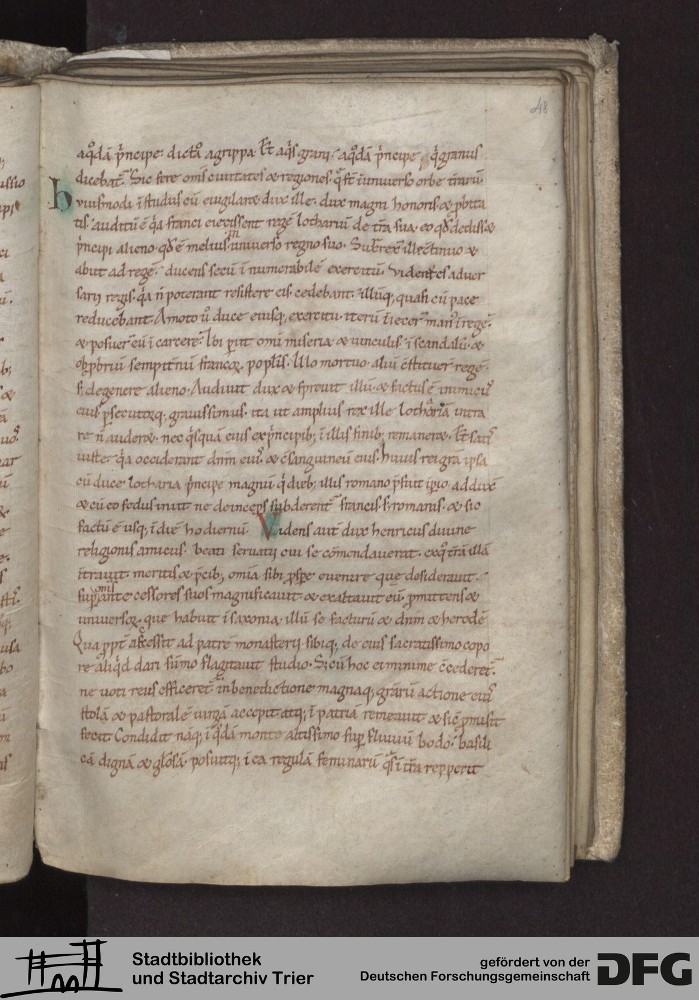 48
a q̊dā p̄ncipe. dictā agrippa. Et aq̄s grani. a q̊dā p̄ncipe q̄ granus
dicebat̄. Sic fere om̄s ciuitates & regiones. q̄ st̄ in uniuerso orbe t̄rarū.
huiusmodi ī studus cū euigilaret dux ille. dux magni honoris & potēta
tis. auditū ē q̄a franci eiecissent regē lotharium de t̄ra sua. eo qd̄ dedisset
p̄ncipi alieno. qd̄ ē melius in uniuerso regno suo. Surrex̄ ille cōtinuo &
abiit ad regē. ducens secū innumerabilē exercitū. Videntes aduer
sarii regis. q̄a n̄ poterant resistere eis. cedebant. illūq; quasi cū pace
reducebant. Amoto ū duce eiusq; exercitu. iterū iniecer̄ man̄ ī regē.
& posuer̄ eū ī carcerē. Ibi p̄iit omī miseria & uinculis. ī scandalū &
obp̄briū sempit̄nū francoꝝ popl̄is. Illo mortuo. alium cōstituer̄ regē.
s; degenere alieno. Audiuit dux & spreuit illū. & factus ē inimic̄
eius. p̄secutorq; grauissimus. ita ut amplius rex ille lothariam intra
re n̄ auderet. nec q̄squā eius ex p̄ncipib; ī illis finib; remaneret. Et satis
iuste. q̄a occiderant dn̄m eius & c̄sanguineū eius. huius rei grā ipsa
cū duce lotharia p̄ncipe magnū q̄dēb; illis romano p̄fuit ipio. addixit
& cū eo fedus iniit ne deinceps subderent̄ francis s; romanis. & sic
factū ē usq; ī diē hodiernū. Videns aut̄ dux henricus diuine
religionis amicus. beati seruatii cui se cōmendauerat. ex q̊ t̄rā illā
īt̄rauit. meritis & p̄cib; omīa sibi p̄spe euenire que desiderauit.
sup̄ om̄s antecessores suos magnificauit & exaltauit eū. p̄mittens &
uniuersoꝝ que habuit ī saxonia. illū se facturū & dn̄m & herodē
Qua ppt̄ accessit ad patrē monasterii. sibiq; de eius sacratissimo corpo
re aliq̄d dari sūmo flagitauit studio. S; cū hoc ei minime c̄cederet̄.
ne uoti reus efficeret̄. cū benedictione magnaq; gr̄arū actione eius
stolā & pastoralē uirgā accepit. atq; ī patriā remeauit & sic p̄misit
fecit. Condidit nāq; ī q̊dā monte altissimo sup̄ fluuiū bodo. basili
cā dignā & glōsā. posuitq; ī ea regulā feminarū q̄s ī t̄ra repperit
Stadtbibliothek
und Stadtarchiv Trier
gefördert von der
Deutschen Forschungsgemeinschaft
DFG